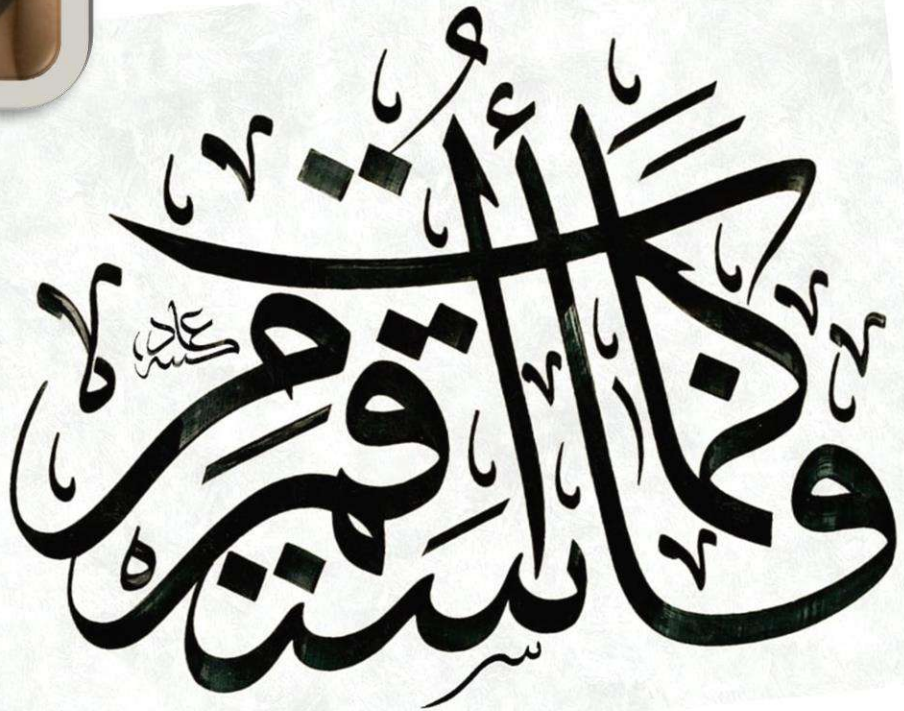 فاستقم كما أمرت